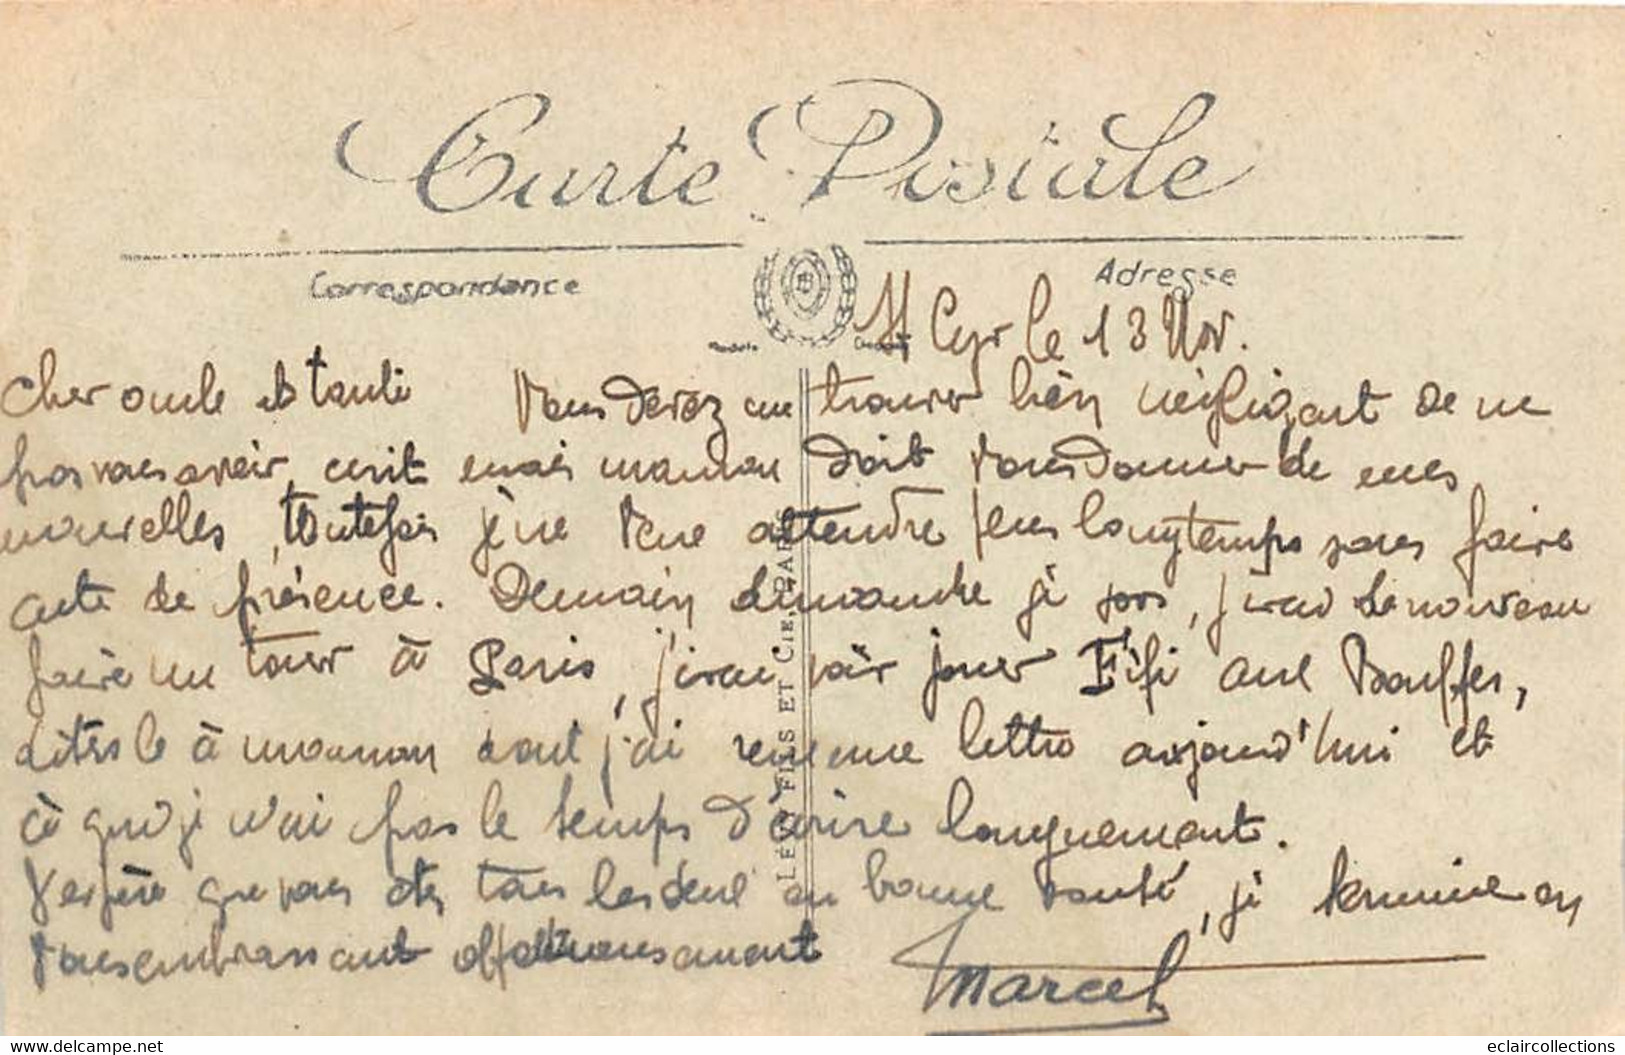 Carte Postale
Correspondance
Adresse
St Cyr le 13 Nov.
Cher oncle et tante Vous devez me trouver bien négligant de ne
pas vous avoir ecrit mais maman doit vous donner de mes
nouvelles, toutefois je ne veux attendre plus longtemps sans faire
acte de présence. Demain dimanche je sors, j'irai de nouveau
faire un tour à Paris, j'irai voir jouer Fifi aux Bouffes,
dites le à maman dont j'ai reçu une lettre aujourd'hui et
à qui je n'ai pas le temps d'écrire longuement.
J'espère que vous etes tous les deux en bonne santé, je termine en
vous embrassant affectueusement
Marcel
LÉVY FILS ET CIE, PARIS
www.delcampe.net
eclaircollections